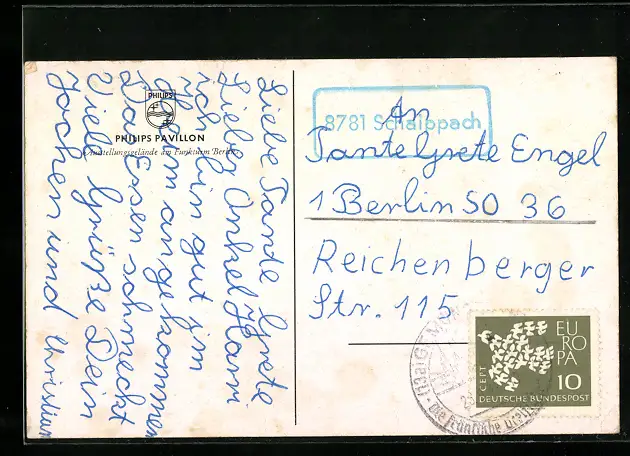 Liebe Tande Grete
Lieber Onkel Hans
ich bin gut im
Heim angekommen
Das Essen schmeckt
Viele Grüße Dein
Jochen und Christian
PHILIPS
PHILIPS PAVILLON
Ausstellungsgelände am Funkturm Berlin
8781 Schaippach
An
Tante Grete Engel
1 Berlin SO 36
Reichenberger
Str. 115
EUROPA
CEPT
10
DEUTSCHE BUNDESPOST
GEMÜNDEN
Die Fränkische